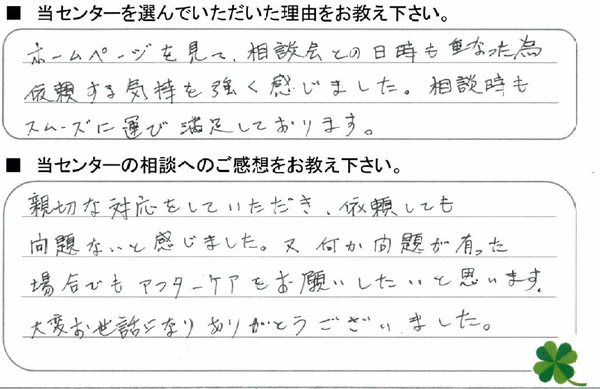 ■ 当センターを選んでいただいた理由をお教え下さい。
ホームページを見て、相談会との日時も重なった為
依頼する気持を強く感じました。相談時も
スムーズに運び満足しております。
■ 当センターの相談へのご感想をお教え下さい。
親切な対応をしていただき、依頼しても
問題ないと感じました。又何か問題が有った
場合でもアフターケアをお願いしたいと思います。
大変お世話になりありがとうございました。